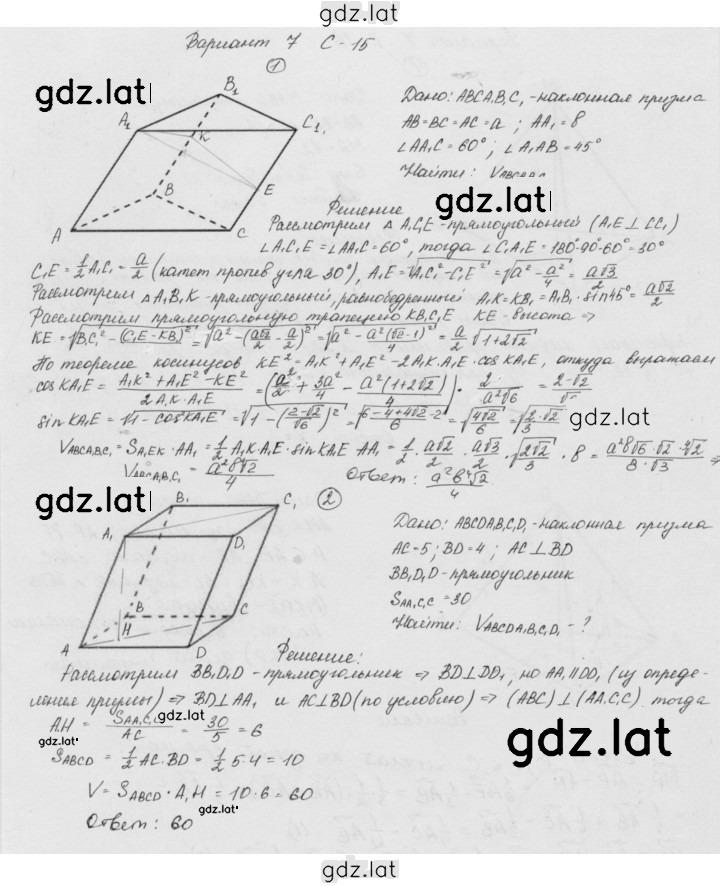 gdz.lat
Вариант 7 С-15
1
gdz.lat
B₁
A₁
K
C₁
B
E
A
C
Дано: ABCA₁B₁C₁ - наклонная призма
AB=BC=AC=a ; AA₁=в
∠AA₁C=60° ; ∠A₁AB=45°
Найти:
gdz.lat
Решение
Рассмотрим △A₁C₁E - прямоугольный (A₁E⊥CC₁)
∠A₁C₁E=∠AA₁C=60°, тогда ∠C₁A₁E=180°-90°-60°=30°
C₁E=½A₁C₁=a/2 (катет против угла 30°), A₁E=√(A₁C₁²-C₁E²)=√(a²-a²/4)=a√3/2
Рассмотрим △A₁B₁K - прямоугольный, равнобедренный A₁K=KB₁=A₁B₁·sin45°=a√2/2
Рассмотрим прямоугольную трапецию KB₁C₁E KE - высота ⇒
KE=√(B₁C₁²-(C₁E-KB₁)²)=√(a²-(a√2/2-a/2)²)=√(a²-a²(√2-1)²/4)=a/2√(1+2√2)
По теореме косинусов KE²=A₁K²+A₁E²-2A₁K·A₁E·cosKA₁E, откуда выражаем
cosKA₁E=(A₁K²+A₁E²-KE²)/(2A₁K·A₁E)=(a²/2+3a²/4-a²(1+2√2)/4)·2/(a²√6)=
sinKA₁E=√(1-cosKA₁E)=√(1-((2-√2)/√6)²)=√((6-4+4√2-2)/6)=√(4√2/6)=√(2√2/3)
V_ABCA₁B₁C₁=S_A₁EK·AA₁=½A₁K·A₁E·sinKA₁E·AA₁=½·a√2/2·a√3/2·√(2√2/3)·в=a²в√6·√2·∜2/(8·√3) ⇒
V_ABCA₁B₁C₁=a²в∜2/4 Ответ: a²в∜2/4
gdz.lat
2
B₁
C₁
A₁
D₁
B
H
C
A
D
Дано: ABCDA₁B₁C₁D₁ - наклонная призма
AC=5 ; BD=4 ; AC⊥BD
BB₁D₁D - прямоугольник
S_AA₁C₁C=30
Найти: V_ABCDA₁B₁C₁D₁ - ?
Решение:
Рассмотрим BB₁D₁D - прямоугольник ⇒ BD⊥DD₁, но AA₁∥DD₁ (из опреде-
ления призмы) ⇒ BD⊥AA₁ и AC⊥BD (по условию) ⇒ (ABC)⊥(AA₁C₁C) тогда
A₁H=S_AA₁C₁C/AC=30/5=6
gdz.lat
gdz.lat
S_ABCD=½AC·BD=½·5·4=10
gdz.lat
V=S_ABCD·A₁H=10·6=60
gdz.lat
Ответ: 60
gdz.lat